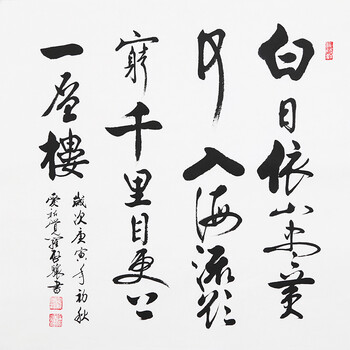 白日依山盡黃
河入海流欲
窮千里目更上
一層樓
歲次庚寅年初秋
愛新覺羅啟驤書